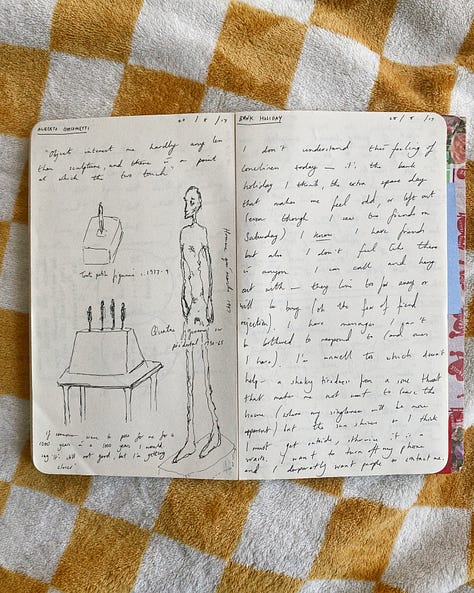 ALBERTO GIACOMETTI
"Objects interest me hardly any less
than sculpture, and there is a point
at which the two touch"
figurine c. 1937-9
Quatre figurines on
pedestal 1950-65
if someone were to pose for me for a
1000 years in a 1000 years I would
say "it's still not good, but I'm getting
closer"
BANK HOLIDAY
I don't understand this feeling of
loneliness today – it's the bank
holiday I think the extra space day
that makes me feel odd, or left out
(even though I saw two friends on
Saturday) I know I have friends
but also I don't feel like there
is anyone I can call and hang
out with – they live too far away or
will be busy (oh the fear of
rejection). I have messages I can't
be bothered to respond to (and ones
I have). I'm unwell too which doesn't
help – a shaky tiredness from a sore throat
that makes me not want to leave the
house (where my singleness will be more
apparent) but the sun shines so I think
I must get outside, otherwise it is a
waste. I want to turn off my phone
and I desperately want people to contact me.